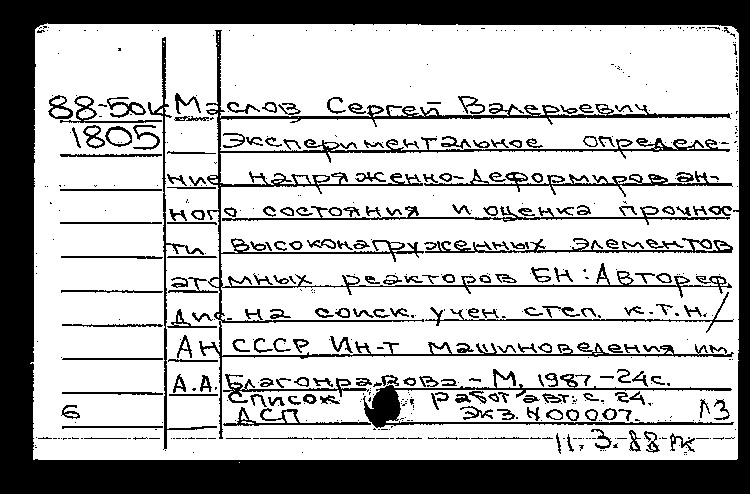 88-50к Маслов Сергей Валерьевич
1805 Экспериментальное определе-
ние напряженно-деформирован-
ного состояния и оценка прочнос-
ти высоконагруженных элементов
атомных реакторов БН: Автореф.
дис. на соиск. учен. степ. к.т.н./
АН СССР Ин-т машиноведения им.
А.А. Благонравова. - М, 1987. - 24с.
Список работ авт. с. 24.
6 ДСП Экз. N00007.
11.3.88